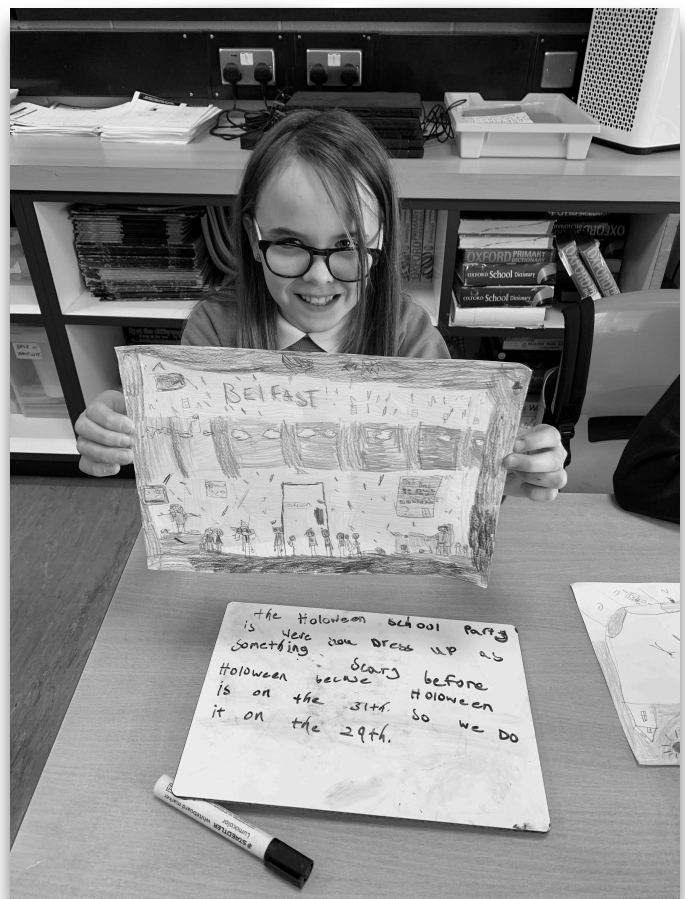 OXFORD PRIMARY
DICTIONARY
OXFORD School Dictionary
OXFORD School Dictionary
OXFORD
BElFAST
the Holoween school Party
is were you Dress up as
something Scary before
Holoween becuse Holoween
is on the 31th. So we Do
it on the 29th.
STAEDTLER
Lumocolor whiteboard marker